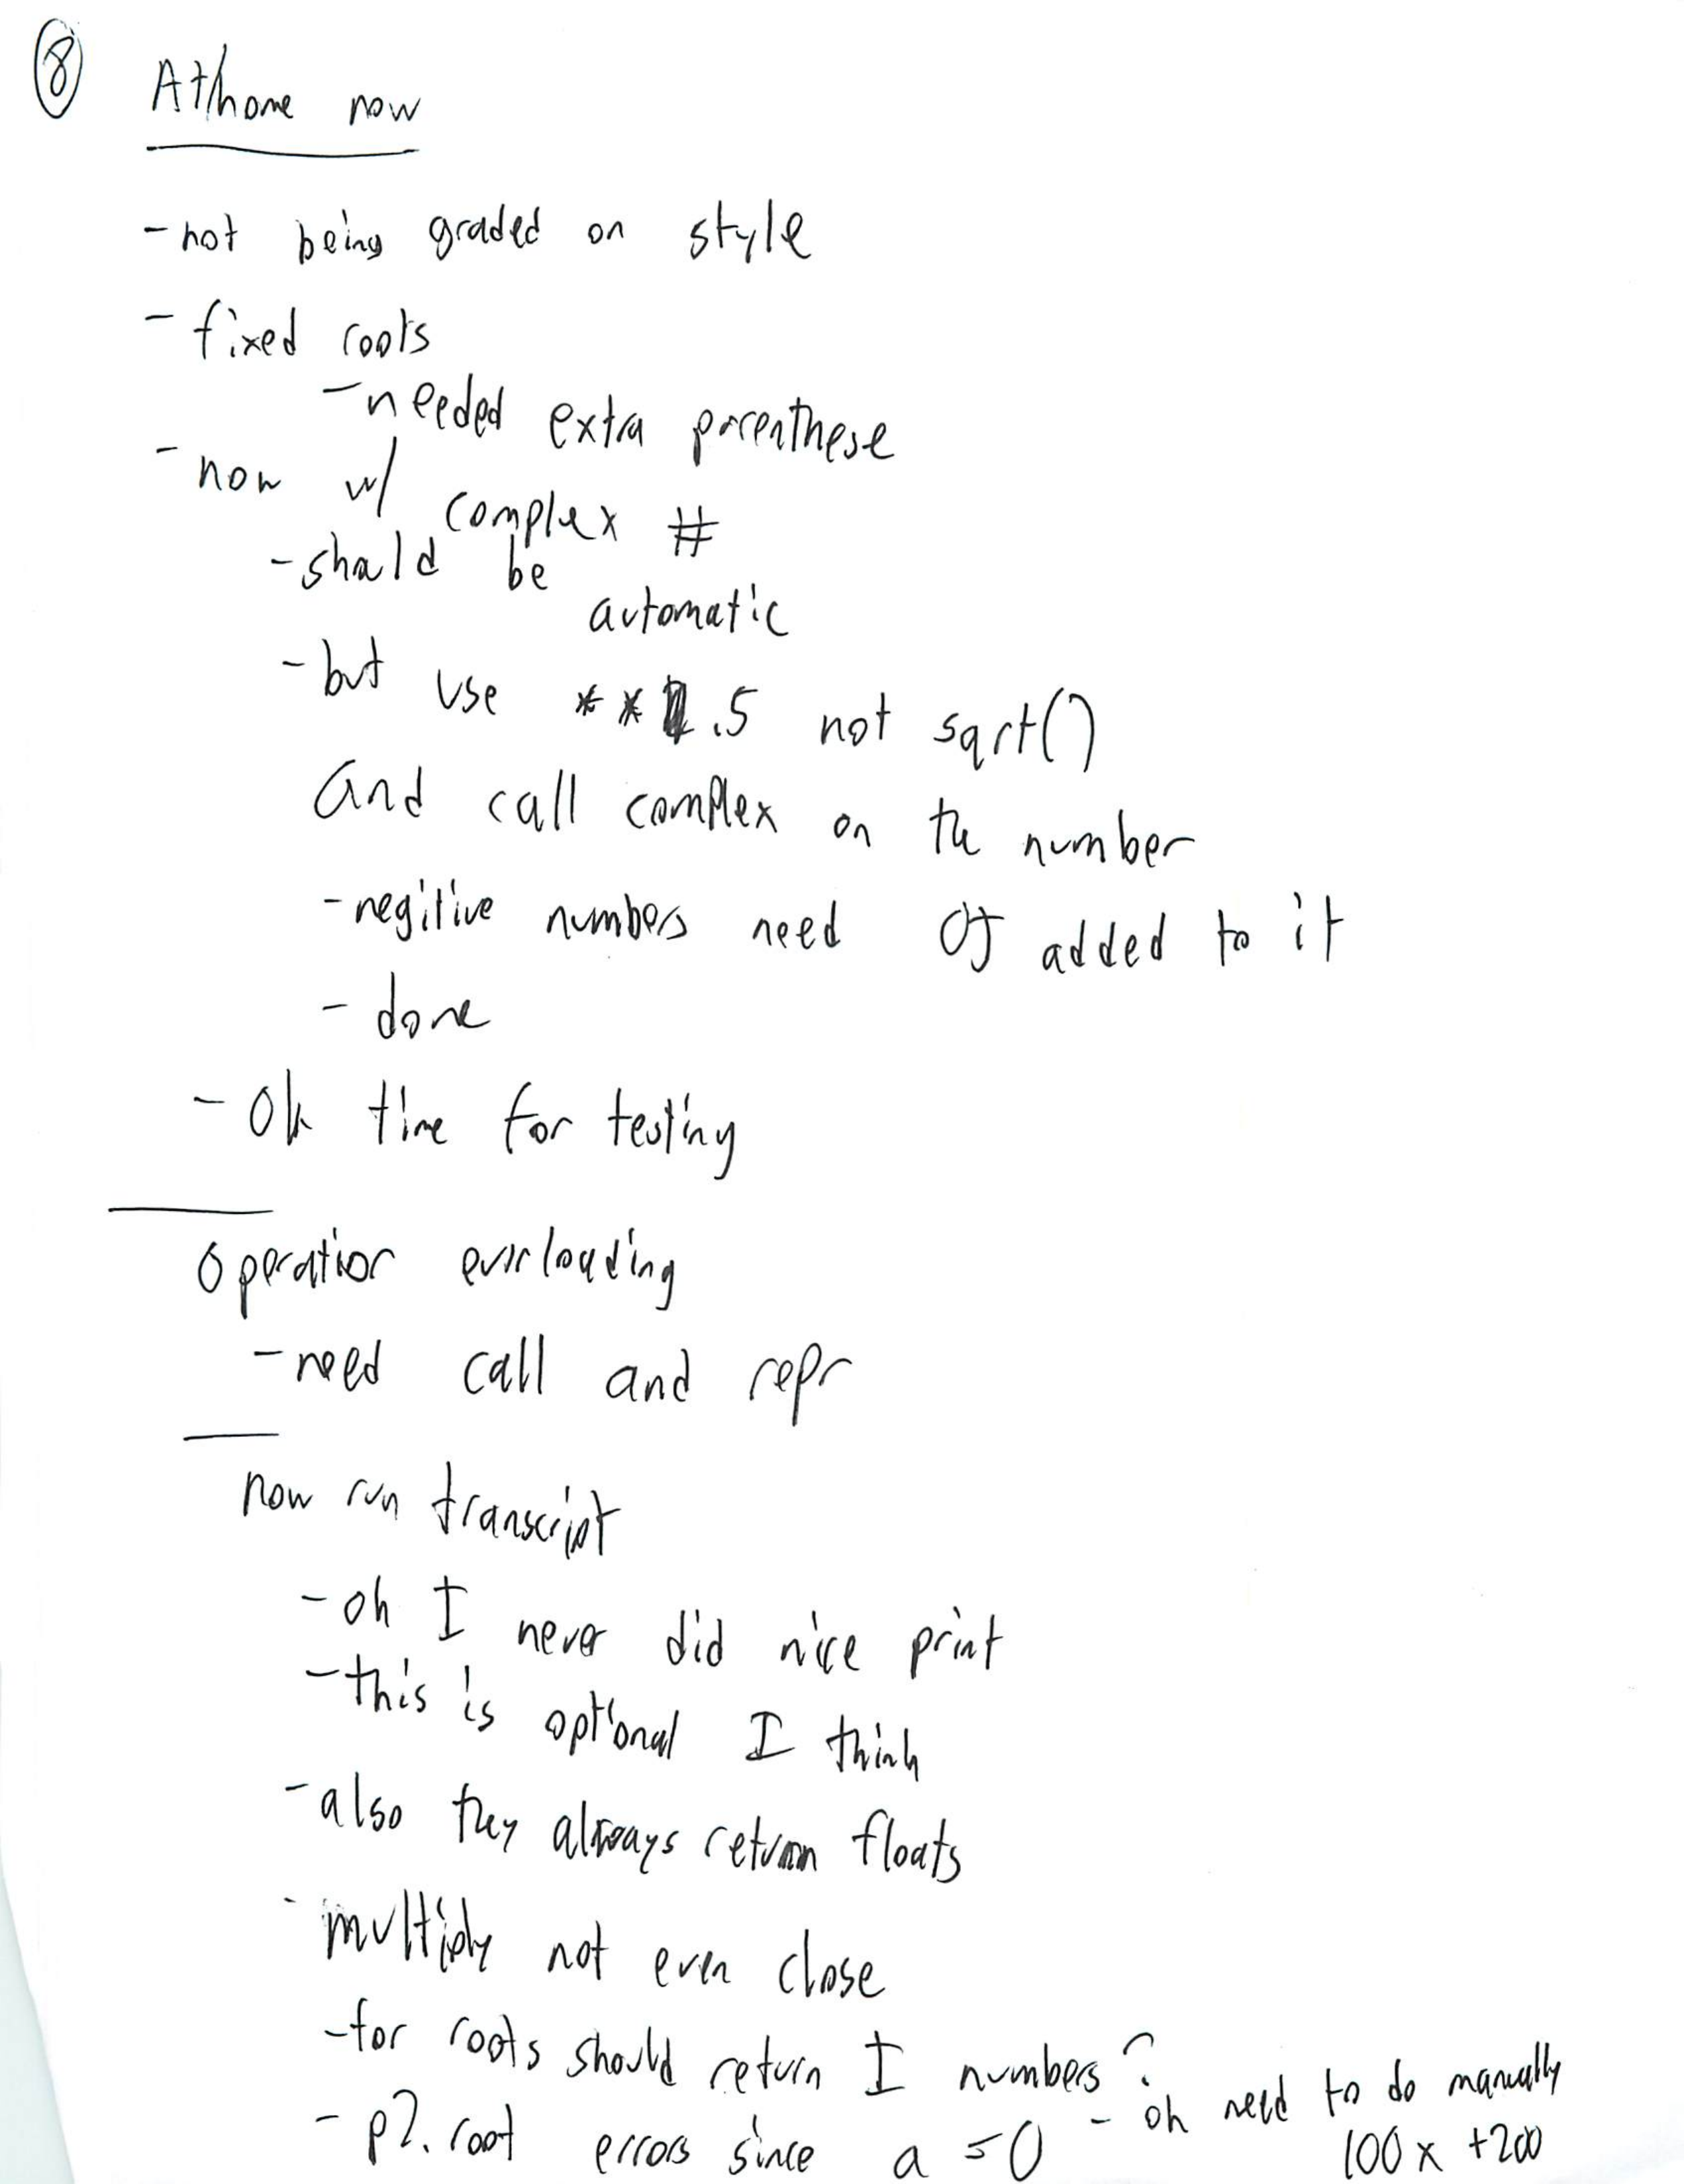 8
At home now
- not being graded on style
- fixed roots
- needed extra parenthese
- now w/ complex #
- should be automatic
- but use **.5 not sqrt()
and call complex on the number
- negitive numbers need 0J added to it
- done
- Ok time for testing
Operation overloading
- need call and repr
now run transcript
- oh I never did nice print
- this is optional I think
- also they always return floats
- multiply not even close
- for roots should return I numbers?
- oh need to do manually
- p2.root errors since a = 0
100x + 200